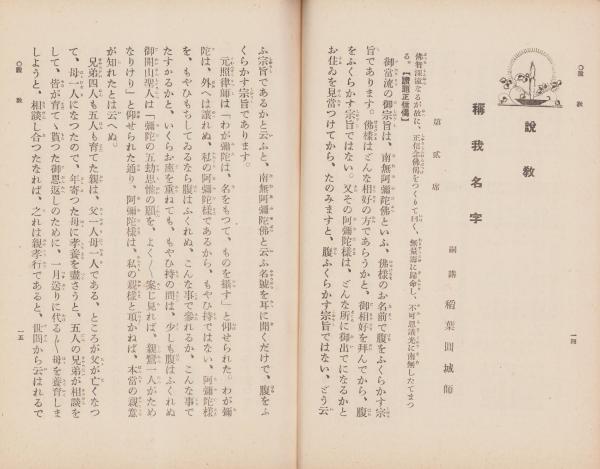 〇說敎
說敎
稱我名字
嗣講 稻葉圓城師
第貳席
佛智深遠なるが故に、正信念佛偈をつくりて曰く、無量壽に歸命し、不可思議光に南無したてまつ
る。【讚題正信偈】
御當流の御宗旨は、南無阿彌陀佛といふ、佛樣のお名前で腹をふくらかす宗
旨であります。佛樣はどんな相好の方であらうかと、御相好を拜んでから、腹
をふくらかす宗旨ではない。又その阿彌陀樣は、どんな所に御出でになるかと
お住ゐを見當つけてから、たのみますと、腹ふくらかす宗旨ではない、どう云
一四
ふ宗旨であるかと云ふと、南無阿彌陀佛と云ふ名號を耳に聞くだけで、腹をふ
くらかす宗旨であります。
元照律師は「わが彌陀は、名をもつて、ものを攝す」と仰せられた。わが彌
陀は、外へは讓れぬ、私の阿彌陀樣であるから、もやひ持ではない、阿彌陀樣
を、もやひもちしてゐるなら腹はふくれぬ、こんな事で參れるか、こんな事で
たすかるかと、いくらお座を重ねても、もやひ持の間は、少しも腹はふくれぬ
御開山聖人は「彌陀の五劫思惟の願を、よく〳〵案じ見れば、親鸞一人がため
なりけり」と仰せられた通り、阿彌陀樣は、私の親樣と頂かねば、本當の親意
が知れたとは云へぬ。
兄弟四人も五人も育てた親は、父一人母一人である、ところが父が亡くなつ
て、母一人になつたので、年寄つた母に孝養を盡さうと、五人の兄弟が相談を
して、皆が育てゝ貰つた御恩返しのために、一月送りに代る〳〵母を養育しま
しようと、相談し合つたなれば、之れは親孝行であると、世間から云はれるで
〇說敎
一五